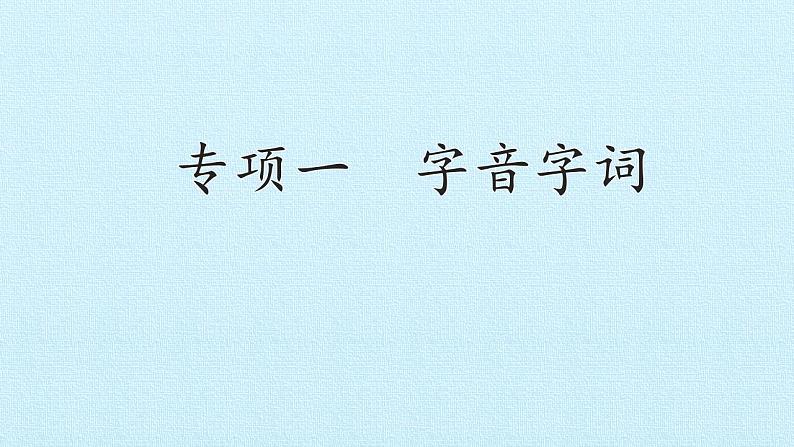 专项一 字音字词